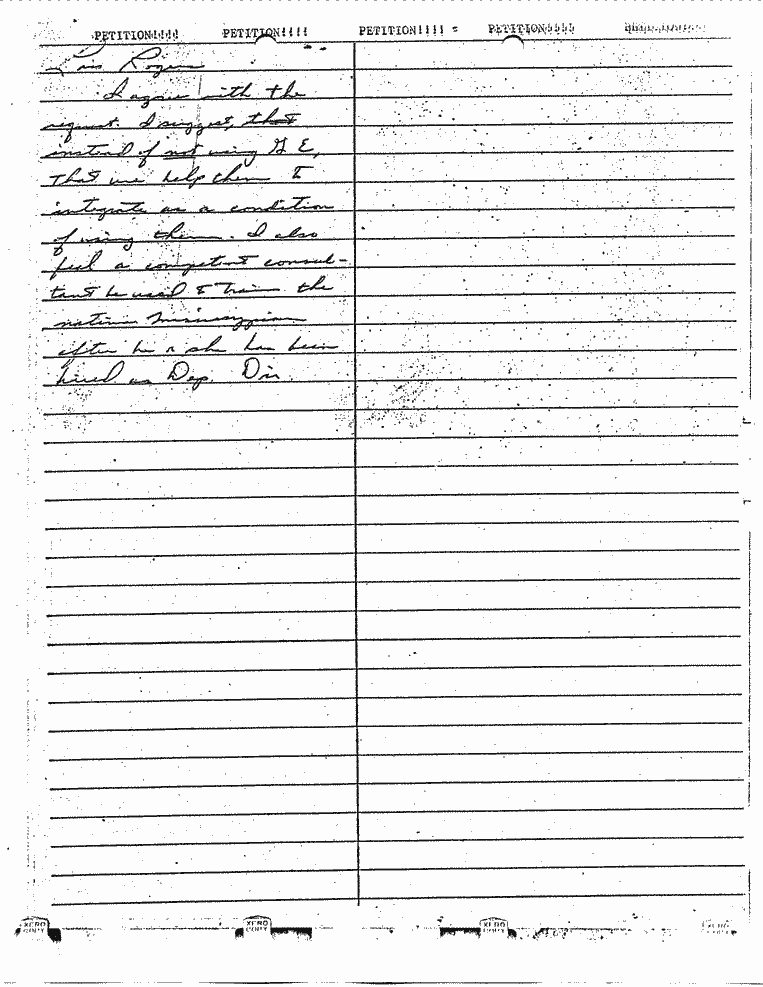 PETITION!!!! PETITION!!!! PETITION!!!! = PETITION!!!!
Lois Rogers
I agree with the
request. I suggest, that
instead of not using G E,
that we help them to
integrate as a condition
of using them. I also
feel a competent consul-
tant be used to train the
native Mississippian
after he or she has been
hired as Dep. Dir.
XERO COPY XERO COPY XERO COPY XERO COPY